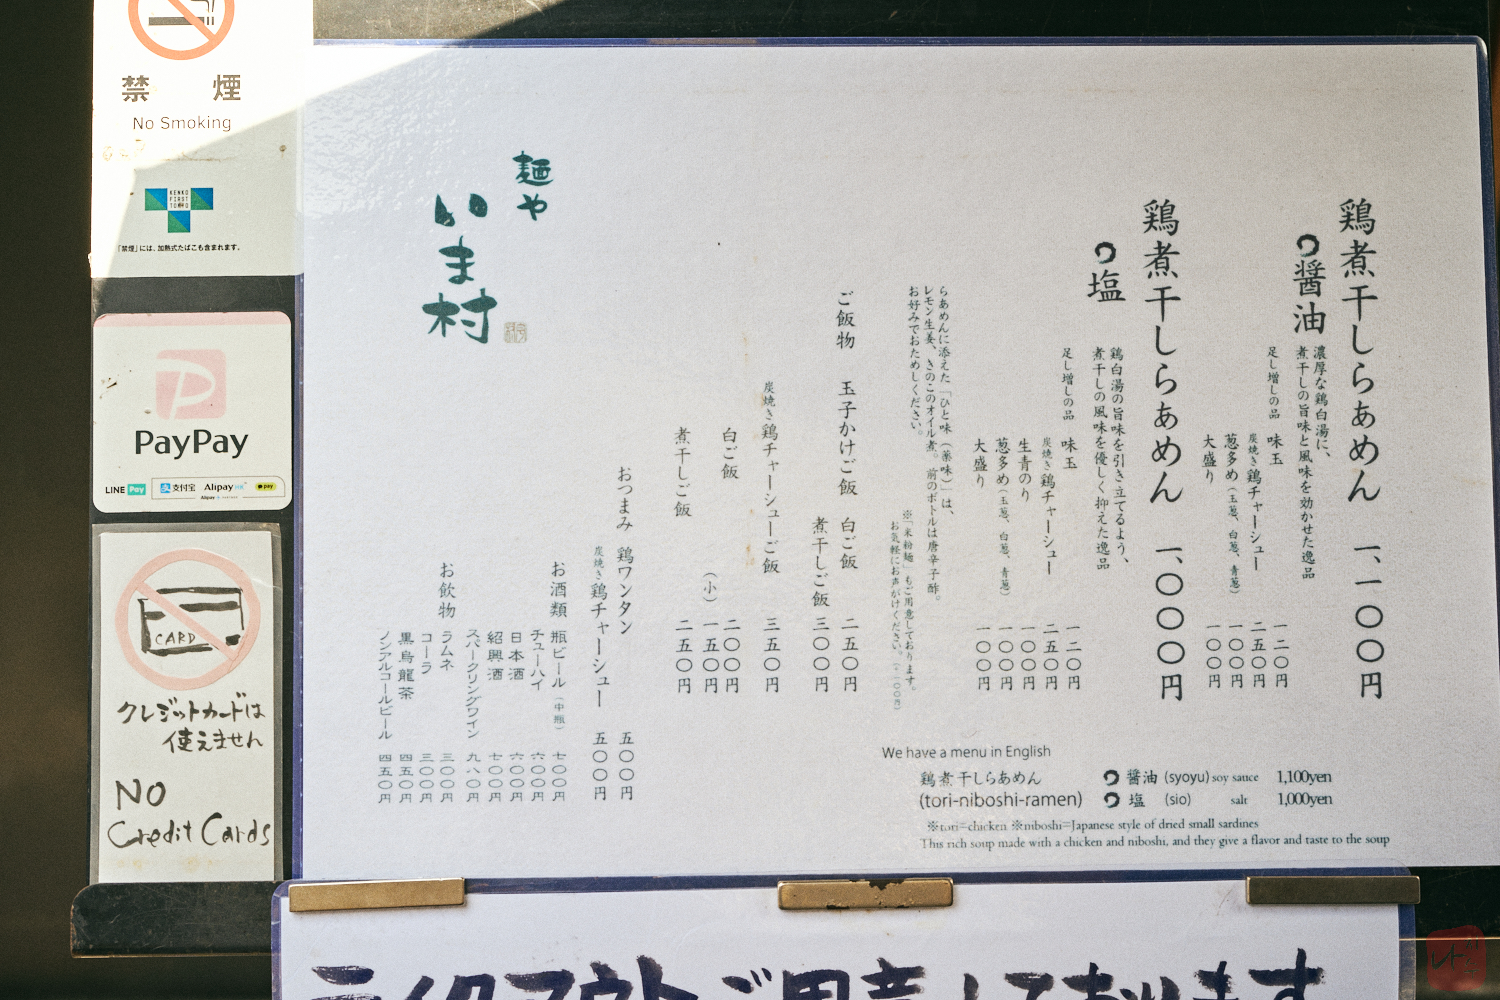 禁煙
No Smoking
KENKO
FIRST
TOKYO
「禁煙」には、加熱式たばこも含まれます。
PayPay
LINE Pay
支付宝
Alipay
pay
CARD
クレジットカードは
使えません
NO
Credit Cards
鶏煮干しらあめん 一、一〇〇円
醤油
濃厚な鶏白湯に、
煮干しの旨味と風味を効かせた逸品
足し増しの品 味玉 一二〇円
炭焼き鶏チャーシュー 二五〇円
葱多め(玉葱、白葱、青葱) 一〇〇円
大盛り 一〇〇円
鶏煮干しらあめん 一、〇〇〇円
塩
鶏白湯の旨味を引き立てるよう、
煮干しの風味を優しく抑えた逸品
足し増しの品 味玉 一二〇円
炭焼き鶏チャーシュー 二五〇円
生青のり 一〇〇円
葱多め(玉葱、白葱、青葱) 一〇〇円
大盛り 一〇〇円
らあめんに添えた「ひと味(薬味)」は、
レモン生姜、きのこのオイル煮。前のボトルは唐辛子酢。
お好みでおためしください。
※「米粉麺」もご用意しております。
お気軽にお声がけください。(+一〇〇円)
ご飯物 玉子かけご飯 白ご飯 二五〇円
煮干しご飯 三〇〇円
炭焼き鶏チャーシューご飯 三五〇円
白ご飯 二〇〇円
(小) 一五〇円
煮干しご飯 二五〇円
おつまみ 鶏ワンタン 五〇〇円
炭焼き鶏チャーシュー 五〇〇円
お酒類 瓶ビール(中瓶) 七〇〇円
チューハイ 六〇〇円
日本酒 六〇〇円
紹興酒 七〇〇円
スパークリングワイン 九八〇円
お飲物 ラムネ 三〇〇円
コーラ 三〇〇円
黒烏龍茶 四五〇円
ノンアルコールビール 四五〇円
麺や
いま村
We have a menu in English
鶏煮干しらあめん 醤油 (syoyu) soy sauce 1,100yen
(tori-niboshi-ramen) 塩 (sio) salt 1,000yen
※tori=chicken ※niboshi=Japanese style of dried small sardines
This rich soup made with a chicken and niboshi, and they give a flavor and taste to the soup
テイクアウトご用意しております